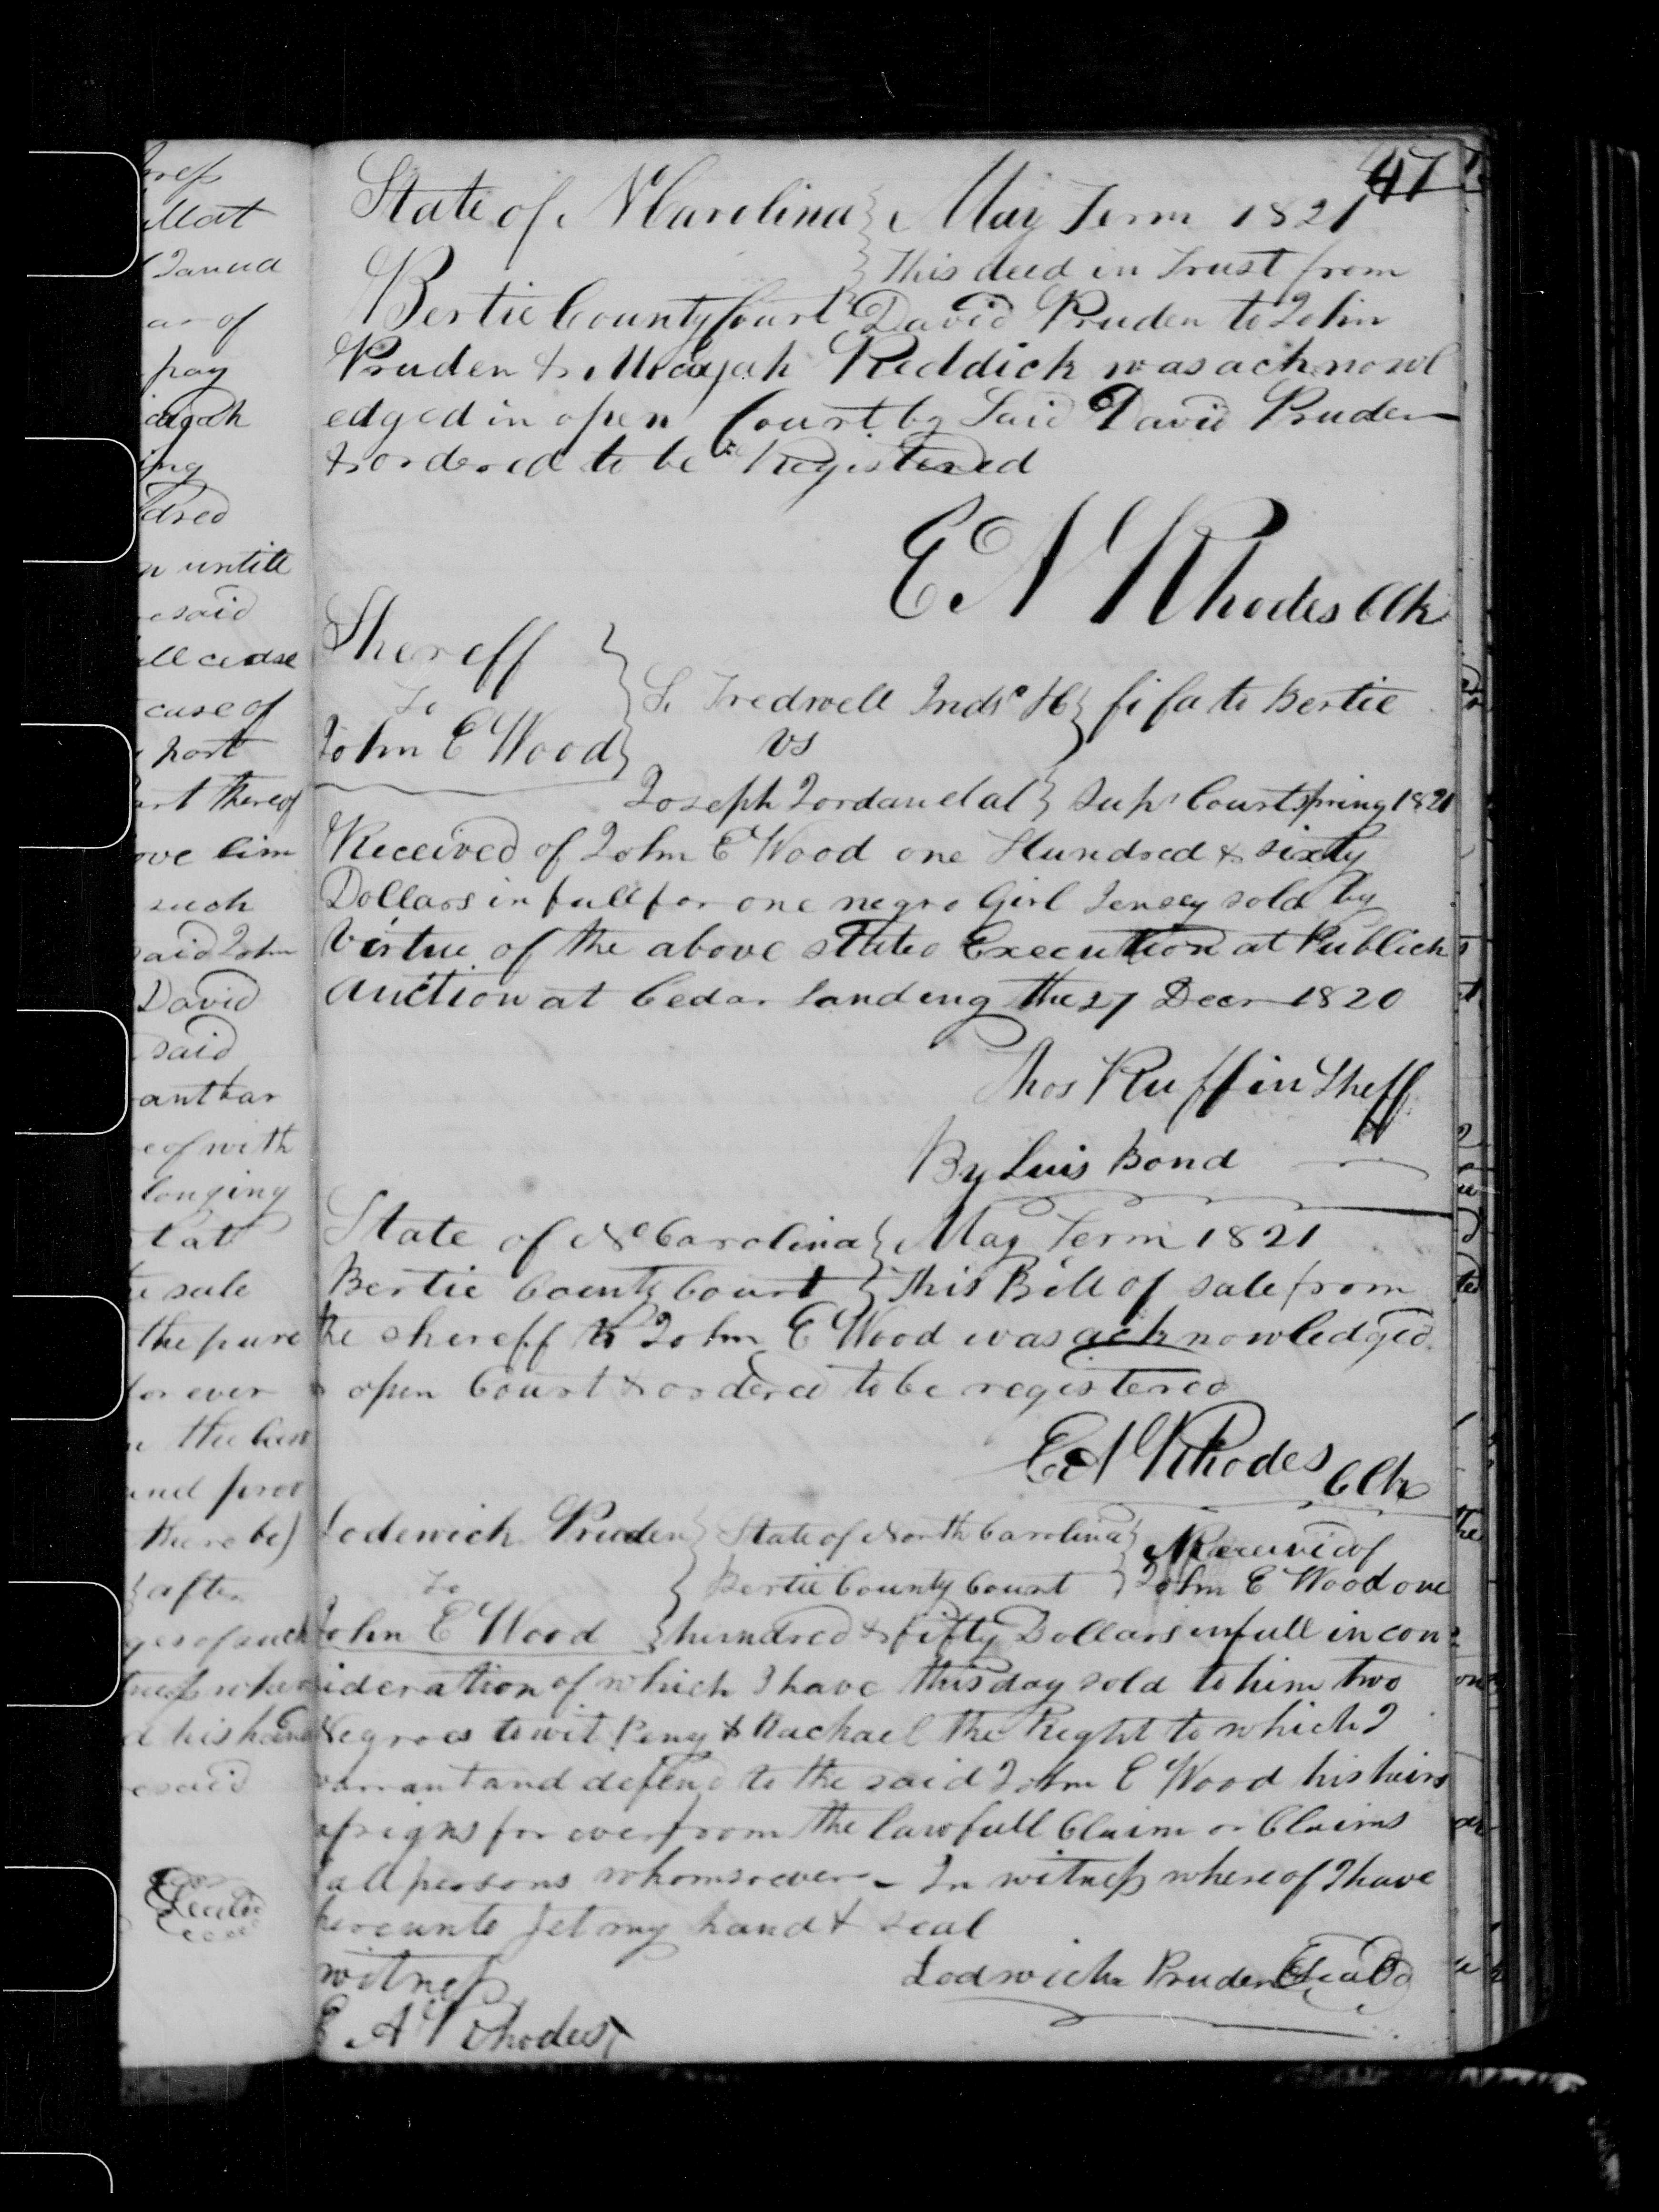 47
State of N Carolina } May Term 1821
} This deed in Trust from
Bertie County Court } David Pruden to John
Pruden & Micajah Reddick was acknowl
edged in open Court by Said David Pruden
& ordered to be Registered
E A Rhodes Clk
Shereff }
To } S. Tredwell Inds } fi fa to Bertie
John E Wood } vs
Joseph Jordan et al } Supr Court spring 1821
Received of John E Wood one Hundred & sixty
Dollars in full for one negro Girl Jensey sold by
Virtue of the above stated Execution at Publick
Auction at Cedar Landing the 27 Decr 1820
Thos Ruffin Sheff
By Luis Bond
State of No Carolina } May Term 1821
Bertie County Court } This Bill of sale from
the shereff to John E Wood was acknowledged
open Court & ordered to be registered
E A Rhodes Clk
Lodewick Pruden } State of North Carolina } Received of
To } Bertie County Court } John E Wood one
John E Wood } hundred & fifty Dollars in full in con
ideration of which I have this day sold to him two
Negroes to wit Peny & Rachael the Right to which I
warrant and defend to the said John E Wood his heirs
assigns for ever from the lawfull Claim or Claims
all persons whomsoever - In witness whereof I have
hereunto set my hand & seal
witness Lodwick Pruden Seal
E A Rhodes
ness
Janua
ar of
pay
ing
dred
n untill
e said
ll cease
case of
part
art thereof
ove him
such
said John
David
said
e of with
longing
t at
e sale
the pure
for ever
and prov
there be)
after
ges of such
d his hand
e said
Seal